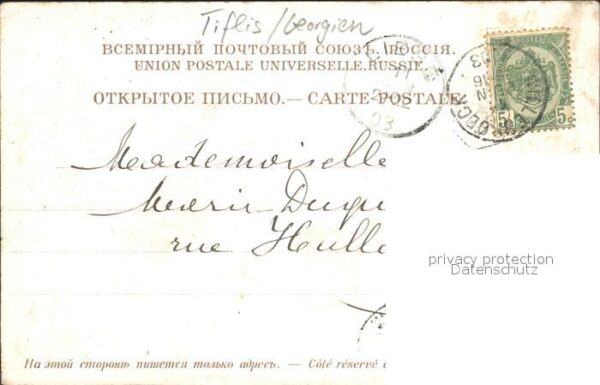 Tiflis/Georgien
ВСЕМІРНЫЙ ПОЧТОВЫЙ СОЮЗЪ. РОССІЯ.
UNION POSTALE UNIVERSELLE. RUSSIE.
ОТКРЫТОЕ ПИСЬМО. — CARTE POSTALE
03
5 5
Mademoiselle
Marie Dupu
rue Hulle
privacy protection
Datenschutz
На этой сторонѣ пишется только адресъ. — Côté réservé